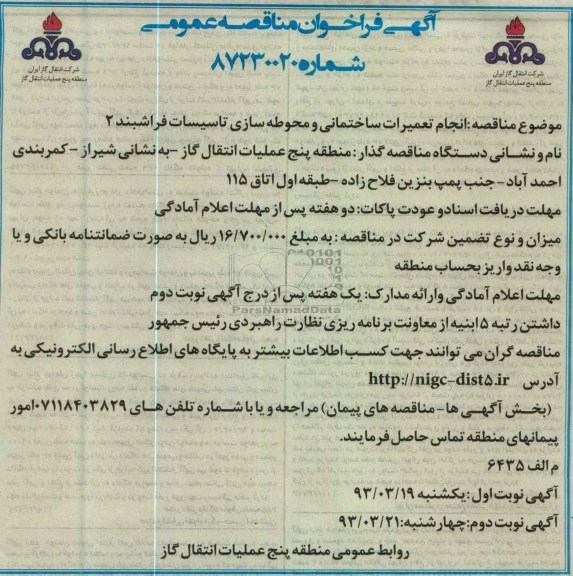 آگهی فراخوان مناقصه عمومی
شماره ۸۷۲۳۰۰۲۰
شرکت انتقال گاز ایران
منطقه پنج عملیات انتقال گاز
شرکت انتقال گاز ایران
منطقه پنج عملیات انتقال گاز
موضوع مناقصه: انجام تعمیرات ساختمانی و محوطه سازی تاسیسات فراشبند ۲
نام و نشانی دستگاه مناقصه گذار: منطقه پنج عملیات انتقال گاز -به نشانی شیراز - کمربندی
احمد آباد- جنب پمپ بنزین فلاح زاده -طبقه اول اتاق ۱۱۵
مهلت دریافت اسناد و عودت پاکات: دو هفته پس از مهلت اعلام آمادگی
میزان و نوع تضمین شرکت در مناقصه: به مبلغ ۱۶/۷۰۰/۰۰۰ ریال به صورت ضمانتنامه بانکی و یا
وجه نقد واریز بحساب منطقه
ParsNamadData
مهلت اعلام آمادگی و ارائه مدارک: یک هفته پس از درج آگهی نوبت دوم
داشتن رتبه ۵ ابنیه از معاونت برنامه ریزی نظارت راهبردی رئیس جمهور
مناقصه گران می توانند جهت کسب اطلاعات بیشتر به پایگاه های اطلاع رسانی الکترونیکی به
آدرس http://nigc-dist۵.ir
(بخش آگهی ها- مناقصه های پیمان) مراجعه و یا با شماره تلفن های ۰۷۱۱۸۴۰۳۸۲۹ امور
پیمانهای منطقه تماس حاصل فرمایند.
م الف ۶۴۳۵
آگهی نوبت اول: یکشنبه ۹۳/۰۳/۱۹
آگهی نوبت دوم: چهارشنبه: ۹۳/۰۳/۲۱
روابط عمومی منطقه پنج عملیات انتقال گاز